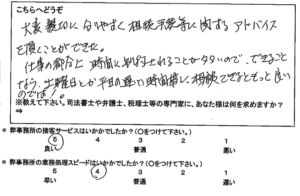 こちらへどうぞ
大変親切に分りやすく相続手続等に関するアドバイス
を頂くことができた。
仕事の都合上 時間にしばられることが多いので、できること
なら、土曜日とか平日の遅い時間帯に相談できるともっと良い
のでは!
※教えて下さい。司法書士や弁護士、税理士等の専門家に、あなた様は何を求めますか?
⇒
● 弊事務所の接客サービスはいかがでしたか?(○をつけて下さい。)
5 4 3 2 1
良い 普通 悪い
● 弊事務所の業務処理スピードはいかがでしたか?(○をつけて下さい。)
5 4 3 2 1
早い 普通 遅い